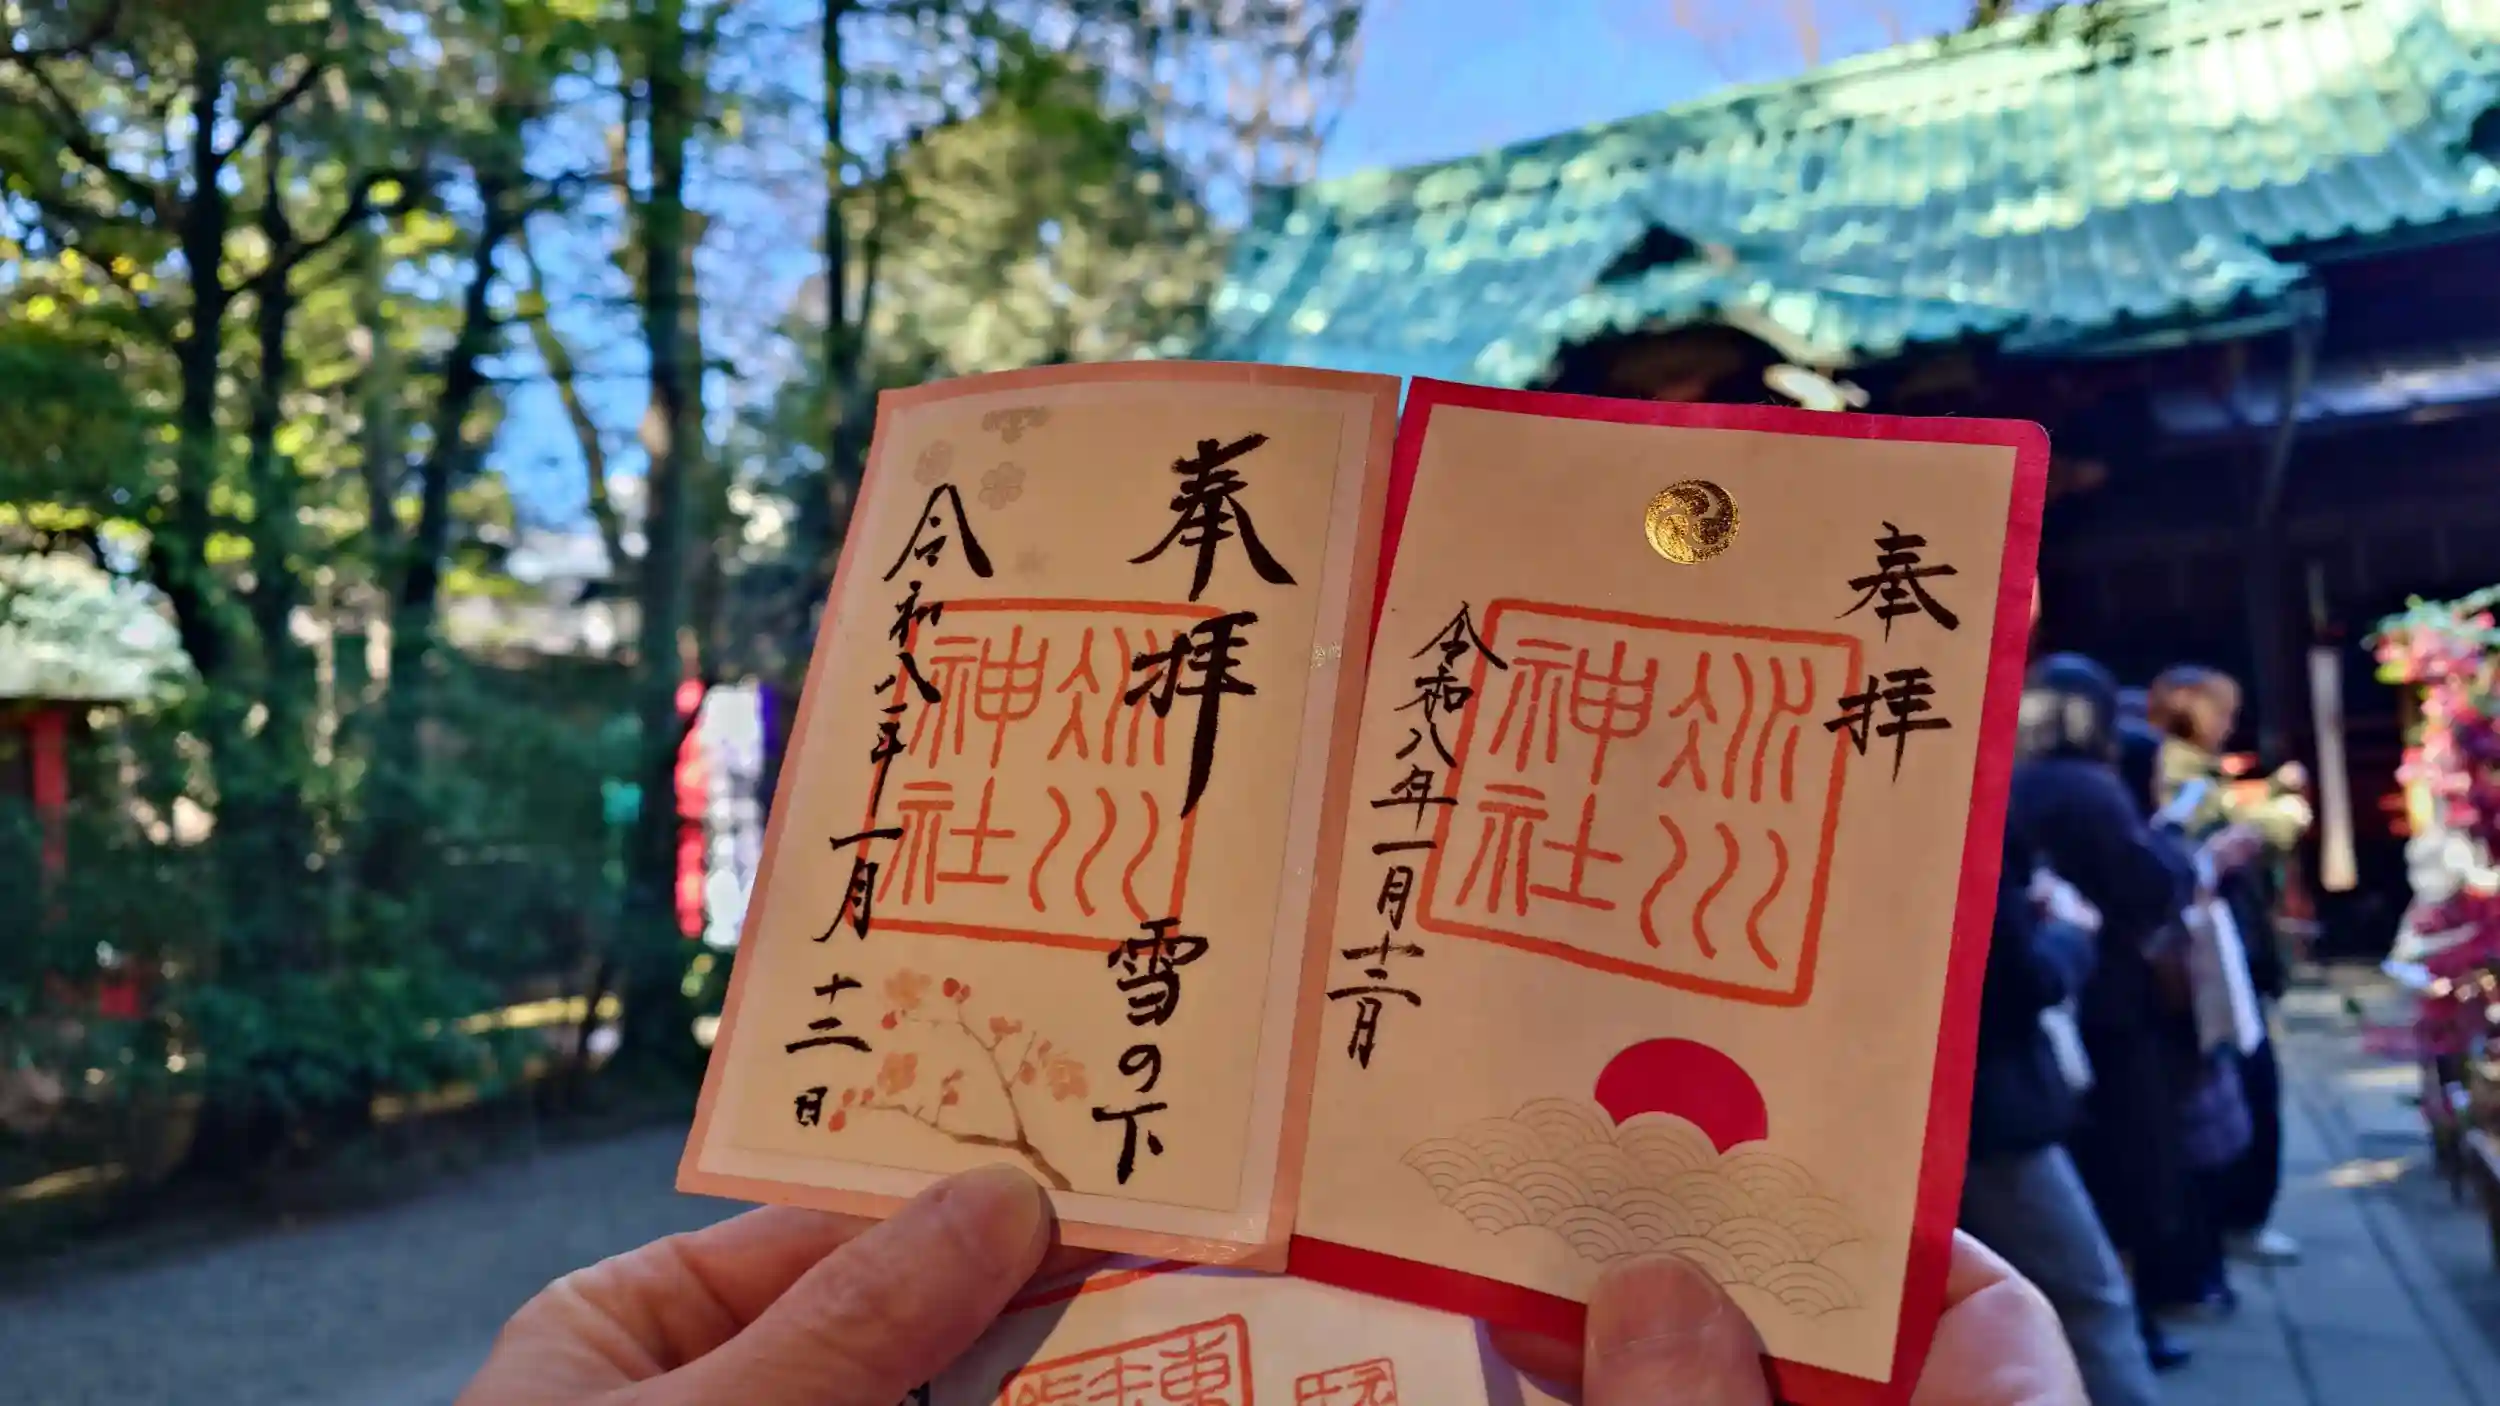 奉拝
氷川
神社
令和八年一月十二日
奉拝 雪の下
氷川
神社
令和八年一月十二日